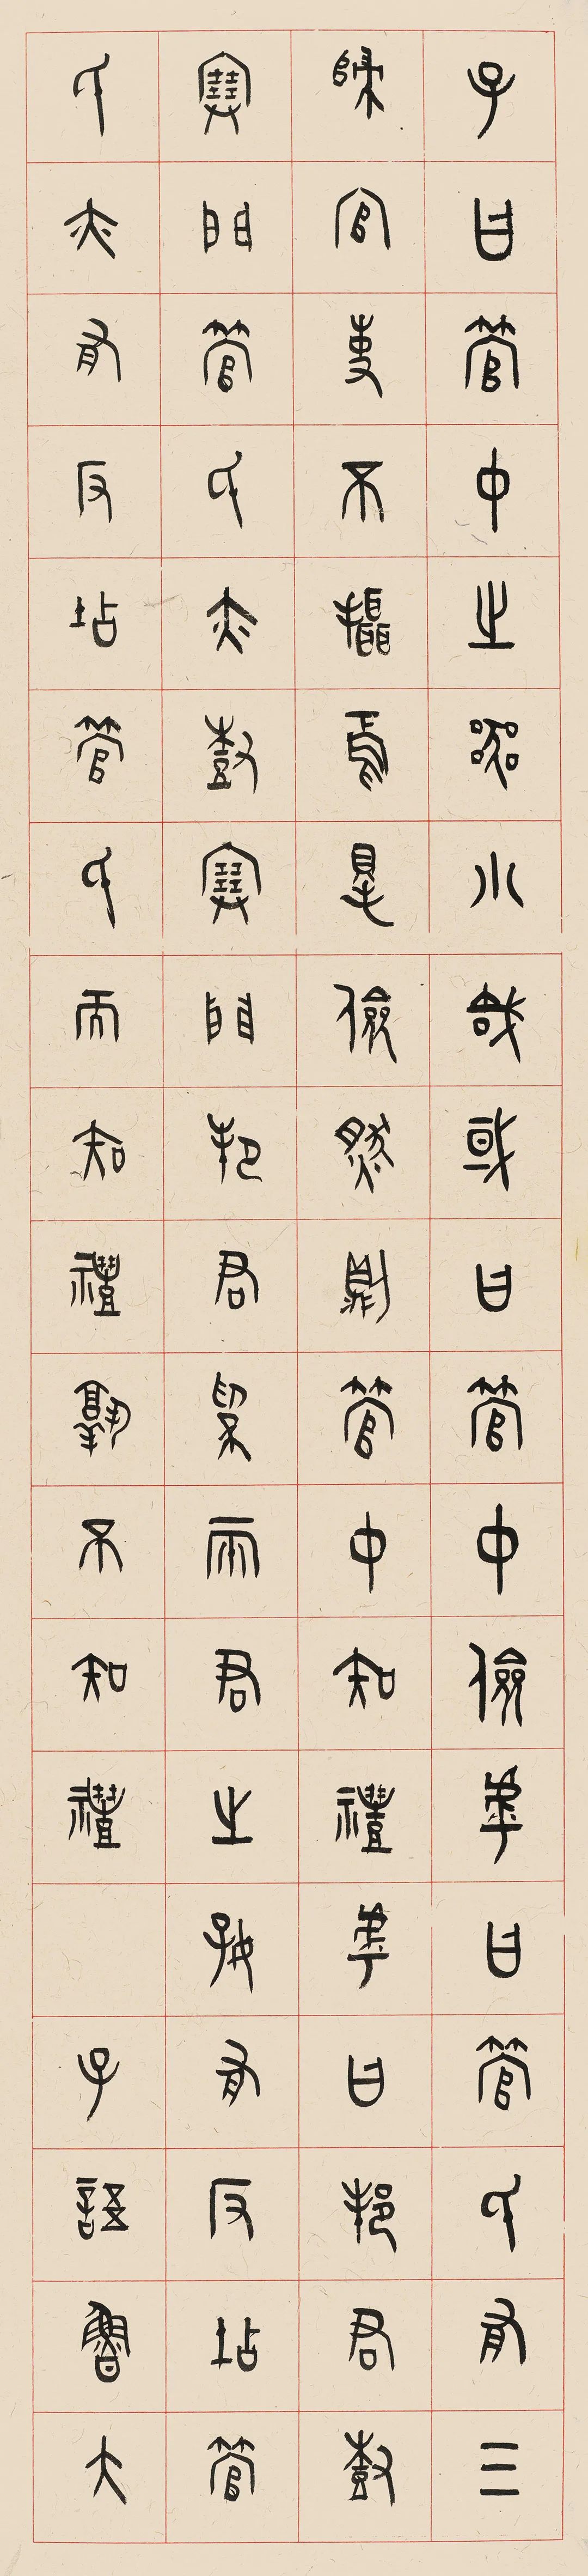 子曰管中之器小哉或曰管中儉乎曰管氏有三
歸官事不攝焉得儉然則管中知禮乎曰邦君樹
塞門管氏亦樹塞門邦君為兩君之好有反坫管
氏亦有反坫管氏而知禮孰不知禮 子語魯大